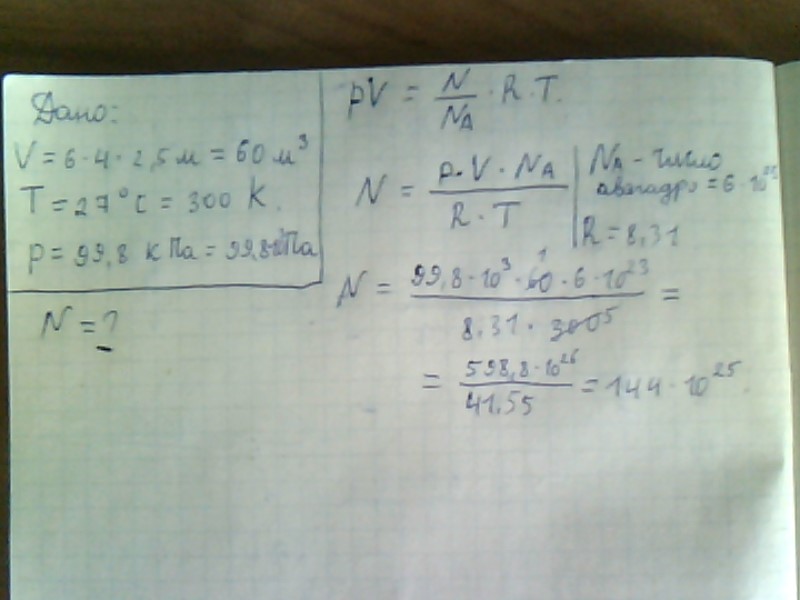 Дано:
V = 6·4·2,5 м = 60 м³
T = 27°C = 300 K.
p = 99,8 кПа = 99,8·10³Па
N = ?
pV = N/N_A · R·T.
N = p·V·N_A / R·T
N_A - число
авагадро = 6·10²³
R = 8,31
N = 99,8·10³·60·6·10²³ / 8,31·300 =
1
5
= 598,8·10²⁶ / 41,55 = 144·10²⁵.